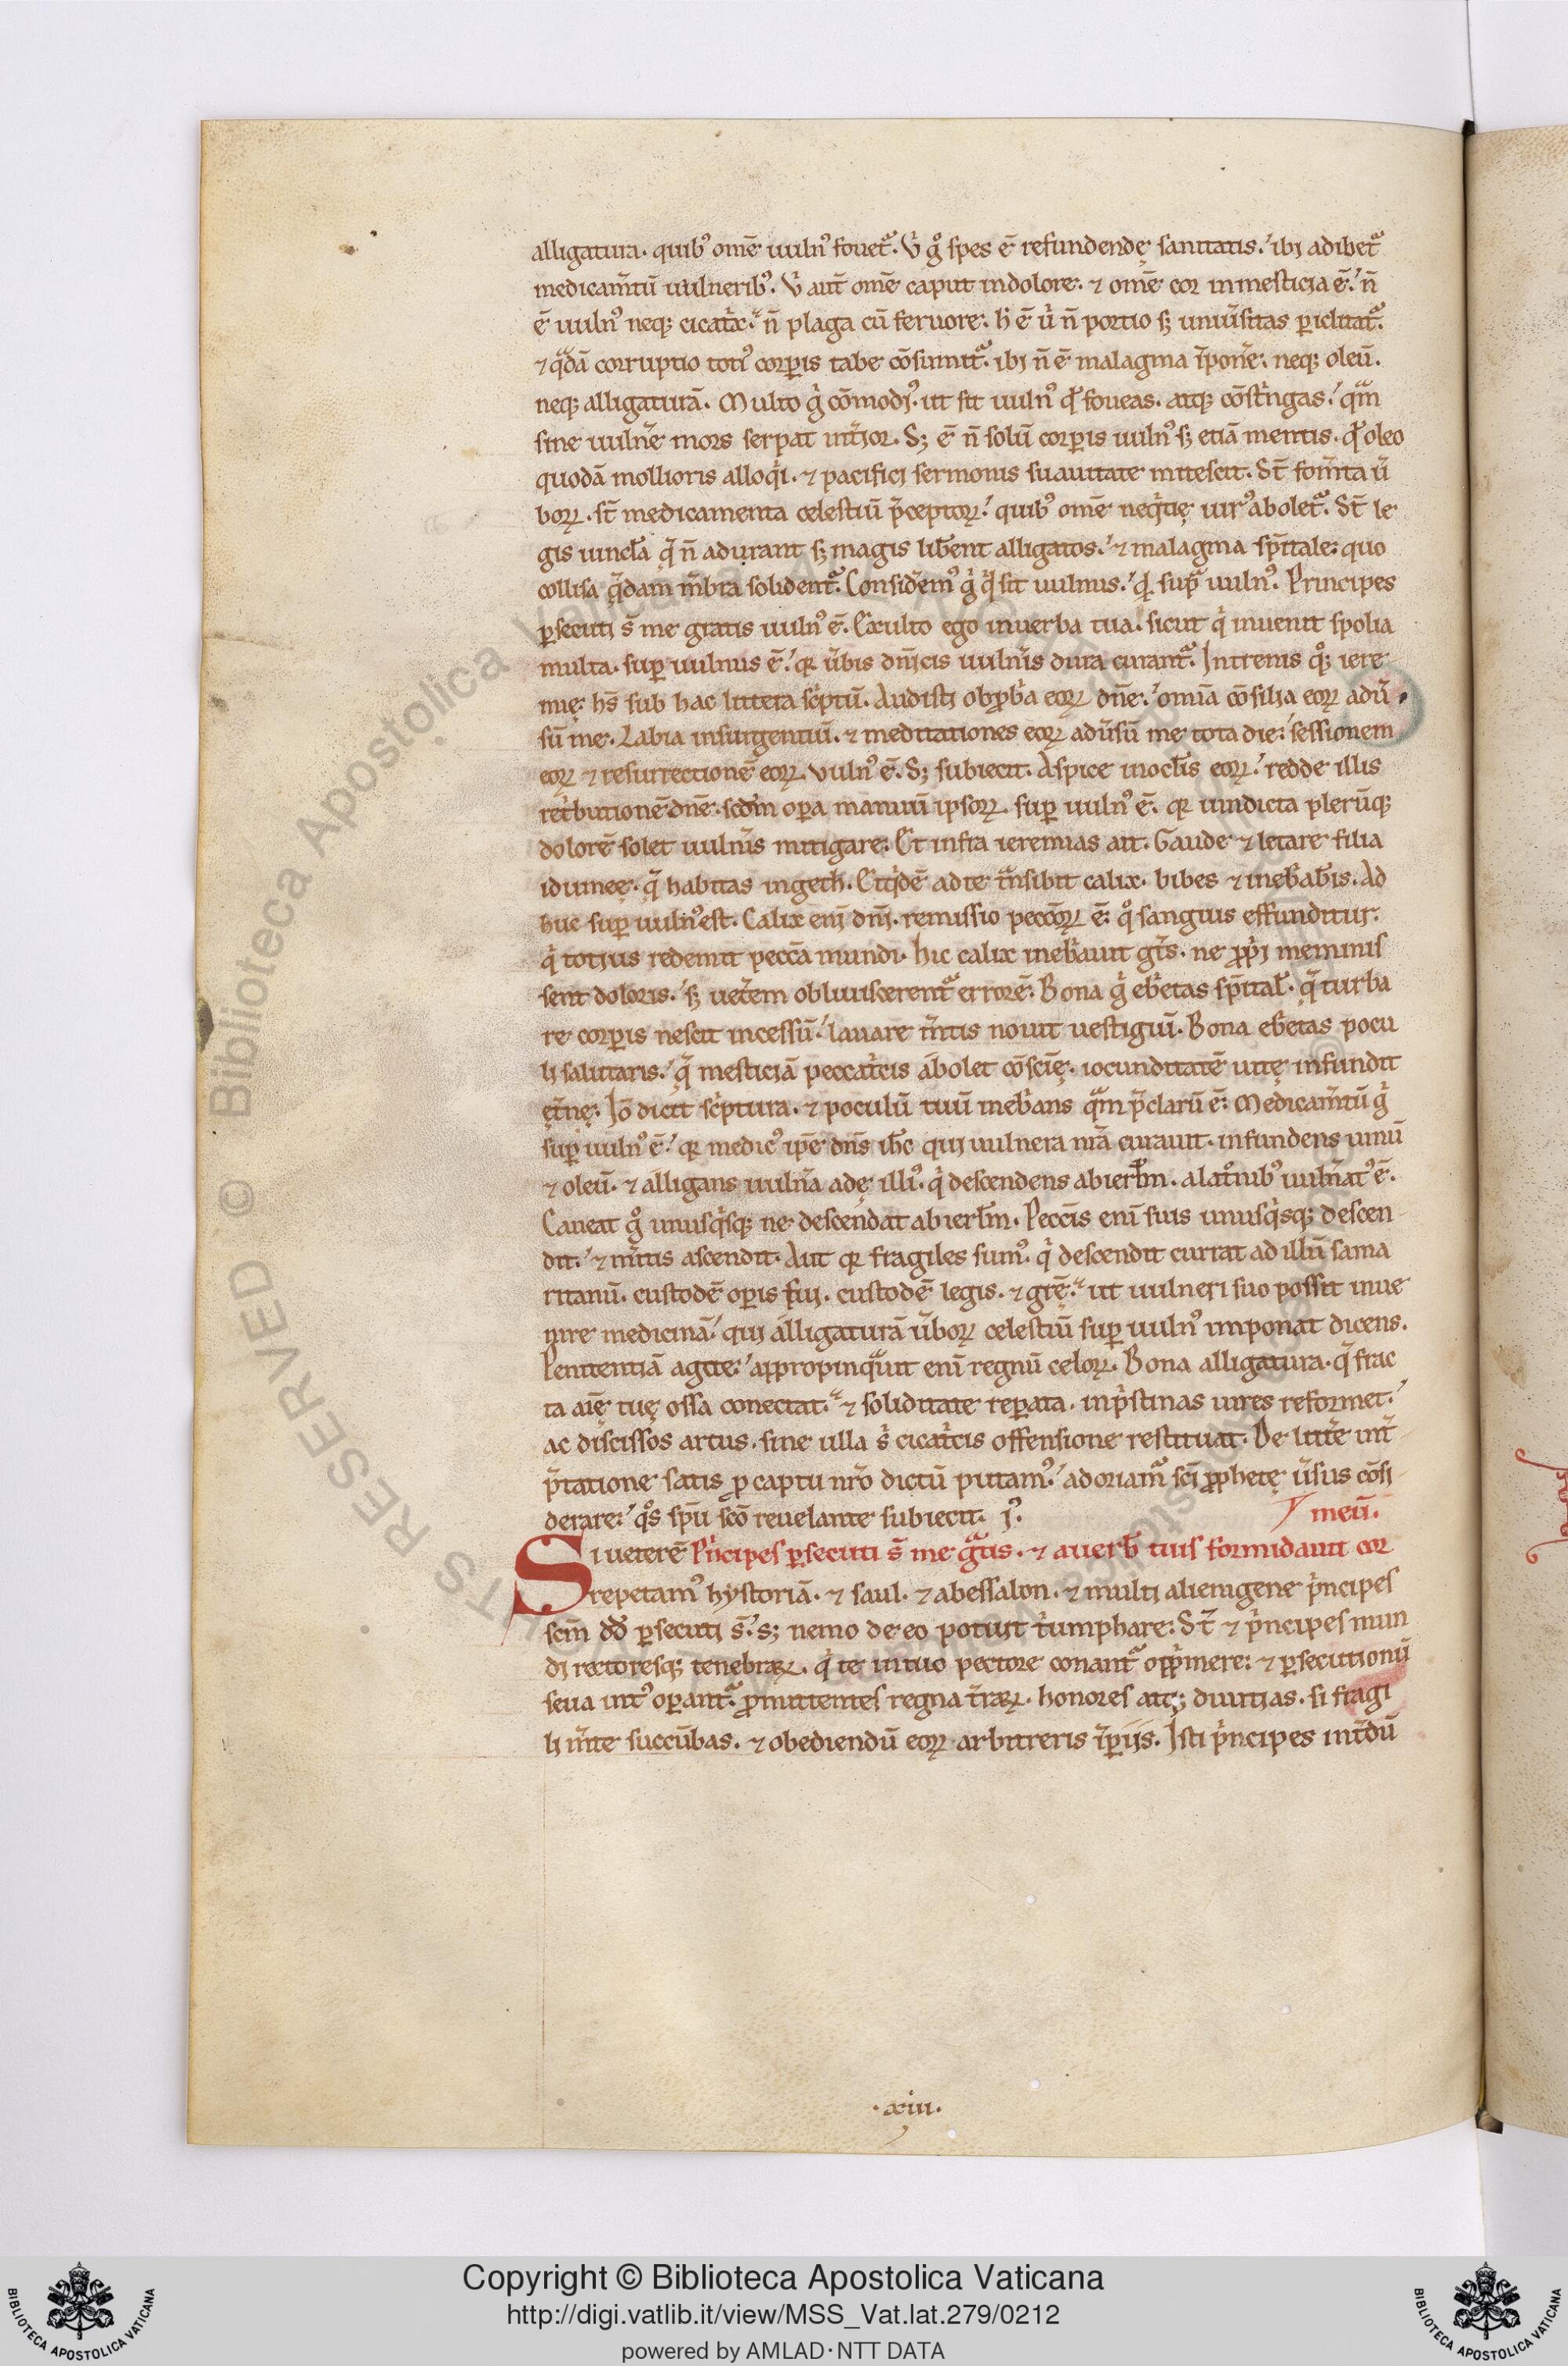 alligatura. quibꝰ om̄e uulnꝰ fouet᷑. Vͥ g̊ spes ē refundendę sanitatis.ˊ ibi adibet᷑
medicam̄tū uulneribꝰ. Vͥ aut̄ om̄e caput indolore. ⁊ om̄e cor inmesticia ē.ˊ n̄
ē uulnꝰ neqꝫ cicatͥx.ˊ n̄ plaga cū feruore. h̓ ē u̓ n̄ portio sꝫ uniu̓sitas ꝑiclitat᷑.
⁊ qͣdā corruptio totiꝰ corꝑis tabe cōsumit᷑. ibi n̄ ē malagma īpon̓e. neqꝫ oleū.
neqꝫ alligaturā. Multo gͥ cōmodiꝰ. ut sit uulnꝰ qď foueas. atqꝫ cōstͥngas.ˊ qͣm
sine uuln̓e mors serpat int̓ior. Sꝫ ē n̄ solū corꝑis uulnꝰ sꝫ etiā mentis. qď oleo
quodā mollioris alloqͥi. ⁊ pacifici sermonis suauitate mitescit. St̄ fom̄ta u̓
boꝝ. st̄ medicamenta celestiū p̄ceptoꝝ.ˊ quibꝰ om̄e neqͥtię uirꝰ abolet᷑. St̄ le
gis uincła q̄ n̄ adurant sꝫ magis lib̓ent alligatos.ˊ ⁊ malagma sp̄itale: quo
collisa q̄dam m̄bra solident᷑. Consid̓emꝰ gͥ qͥd sit uulnus.ˊ qď supͣ uulnꝰ. Principes
ꝑsecuti s̄ me gratis uulnꝰ ē. Exulto ego inuerba tua. sicut qͥ inuenit spolia
multa. suꝑ uulnus ē.ˊ qꝛ u̓bis dn̄icis uuln̓is dura curant᷑. Intrenis qꝫ iere
mię. hs̄ sub hac littera scͥptū. Audisti obꝓbͥa eoꝝ dn̄e.ˊ omīa cōsilia eoꝝ adu̓
sū me. Labia insurgentiū. ⁊ meditationes eoꝝ adu̓sū me tota die: sessionem
eoꝝ ⁊ resurrectionē eoꝝ. uulnꝰ ē. Sꝫ subiecit. Aspice inocłis eoꝝ.ˊ redde illis
retͥbutionē dn̄e. scd̄m oꝑa manuū ipsoꝝ. suꝑ uulnꝰ ē. qꝛ uindicta plerūqꝫ
dolorē solet uuln̓is mitigare: Et infra ieremias ait. Gaude ⁊ letare filia
idumeę. q̄ habitas ingeth. Etqͥdē adte tͣnsibit calix. bibes ⁊ inebͥab̓is. Ad
huc suꝑ uulnꝰ est. Calix eni dn̄i. remissio pecc̄oꝝ ē: qͦ sanguis effunditur.
qͥ totius redemit pecc̄a mundi. hic calix inebͥauit gt̄s. ne ꝓpͥi meminis
sent doloris.ˊ sꝫ uet̓em obliuiscerent᷑ errorē. Bona gͥ ebͥetas sp̄ital̓. q̄ turba
re corꝑis nescit incessū.ˊ leuare m̄tis nouit uestigiū. Bona ebͥetas pocu
li salutaris.ˊ q̄ mesticiā peccatͥcis abolet cōscię̄. iocunditatē uitę infundit
ęt̓nę. Iō dicit scͥptura. ⁊ poculū tuū inebͥans qͣm p̄clarū ē: Medicam̄tū gͥ
suꝑ uulnꝰ ē.ˊ qꝛ medicꝰ ip̄e dn̄s ih̄c qui uulnera nr̄a curauit. infundens uinū
⁊ oleū. ⁊ alligans uuln̓a adę illiꝰ. qͥ descendens abierłm. alatͦnibꝰ uuln̓atꝰ ē.
Caueat gͦ unusqͥsqꝫ ne descendat abierłm. Pecc̄is enī suis unusqͥsqꝫ descen
dit.ˊ ⁊ m̄itis ascendit. Aut qꝛ fragiles sumꝰ. qͥ descendit currat ad illū sama
ritanū. custodē oꝑis sui. custodē legis. ⁊ gr̄ę.ˊ ut uulneri suo possit inue
nire medicinā.ˊ qui alligaturā u̓boꝝ celestiū suꝑ uulnꝰ imponat dicens.
Penitentiā agite:ˊ appropinqͣuit enī regnū celoꝝ. Bona alligatura. q̄ frac
ta aīę tuę ossa conectat.ˊ ⁊ soliditate reꝑata. inpͥstinas uires reformet.ˊ
ac discissos artus. sine ulla s̓ cicatͥcis offensione restituat. De litt̓e int̓
p̄tatione satis ꝓ captu nr̄o dictū putamꝰ.ˊ adoriamͣ sc̄i ꝓphetę u̓sus cōsi
derare:ˊ qͦs sp̄u sc̄o reuelante subiecit. iꝰ. meū.
Si ueterē Pͥncipes ꝑsecuti s̄ me gͣtis. ⁊ auerb̓ tuis formidauit cor
repetamꝰ hystoriā. ⁊ saul. ⁊ abessalon. ⁊ multi alienigene pͥncipes
sc̄m dd̄ ꝑsecuti s̄.ˊ sꝫ nemo de eo potuit tͥumphare: St̄ ⁊ pͥncipes mun
di rectoresqꝫ tenebraꝝ. qͥ te intuo pectore conant᷑ oppͥmere: ⁊ ꝑsecutionū
seua intꝰ oꝑant᷑. ꝓmittentes regna t̓raꝝ. honores atqꝫ diuitias. si fragi
li m̄te succūbas. ⁊ obediendū eoꝝ arbitreris īꝑiis. Isti pͥncipes int̓dū
.xiii.
Copyright © Biblioteca Apostolica Vaticana
http://digi.vatlib.it/view/MSS_Vat.lat.279/0212
powered by AMLAD·NTT DATA